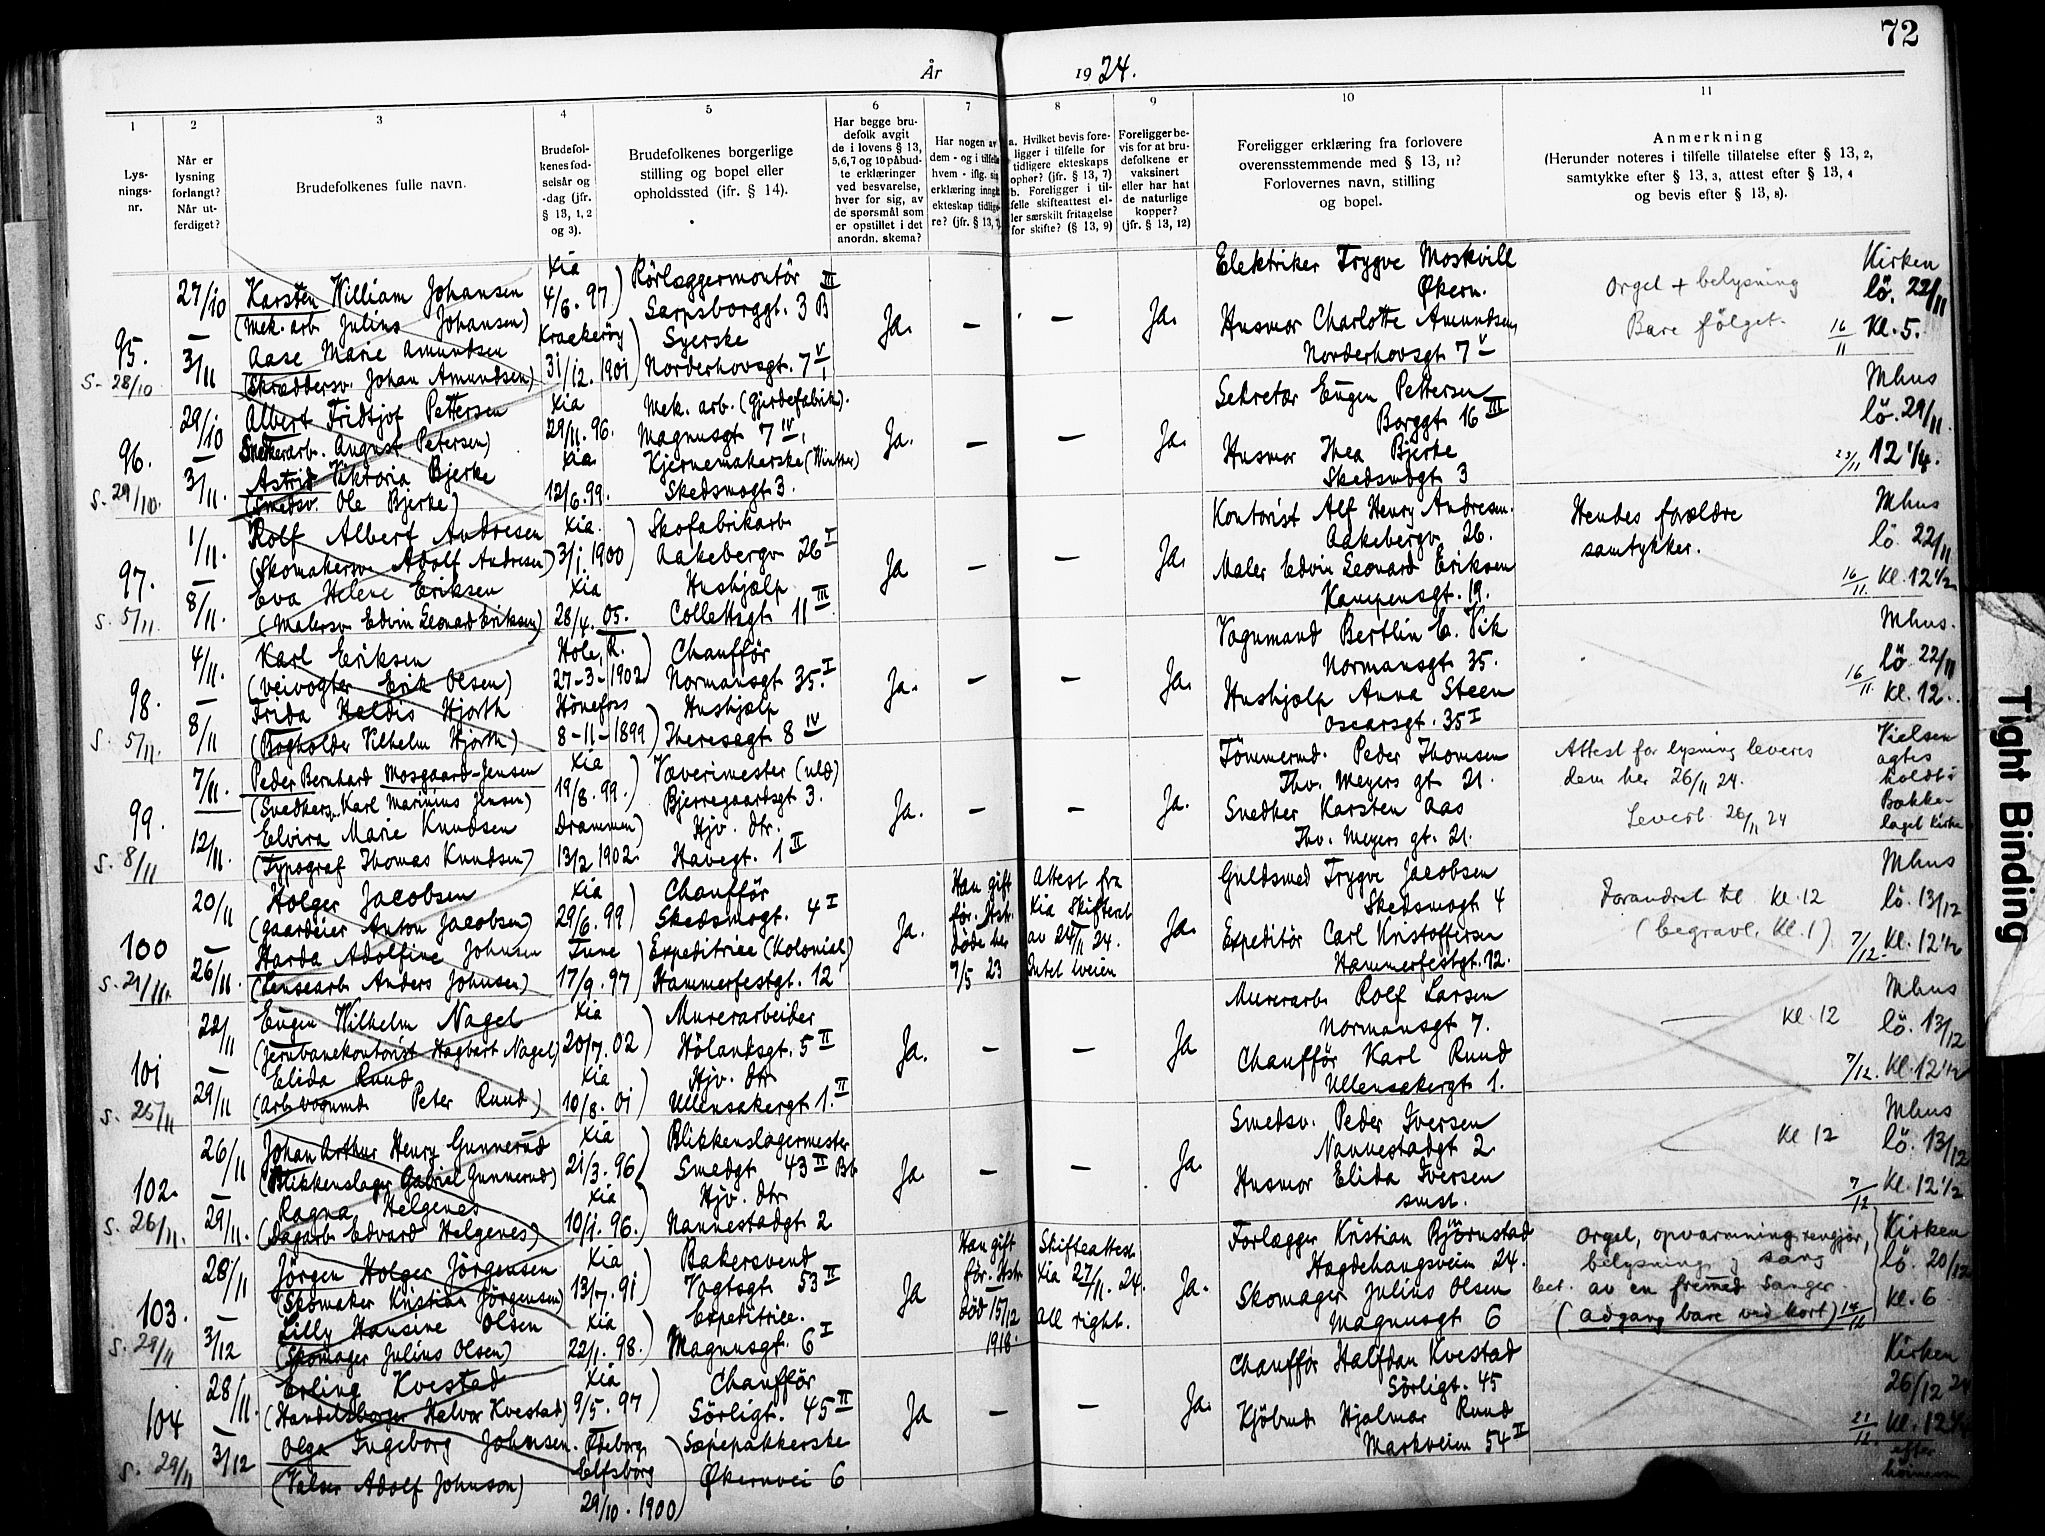 72
År 1924.
1 2 3 4 5 6 7 8 9 10 11
Lys-
nings-
nr.
Når er
lysning
forlangt?
Når ut-
ferdiget?
Brudefolkenes fulle navn.
Brudefol-
kenes fød-
selsår og
-dag (jfr.
§ 13, 1, 2
og 3).
Brudefolkenes borgerlige
stilling og bopel eller
opholdssted (jfr. § 14).
Har begge bru-
defolk avgit
de i lovens § 13,
5,6,7 og 10 påbud-
te erklæringer
ved besvarelse,
hver for sig, av
de spørsmål som
er opstillet i det
anordn. skema?
Har nogen av
dem - og i tilfelle
hvem - iflg. sig
erklæring inngå
ekteskap tidlige-
re? (jfr. § 13, 7)
a. Hvilket bevis fore-
ligger i tilfelle for
tidligere ekteskaps
ophør? (jfr. § 13, 7)
b. Foreligger i til-
felle skifteattest el-
ler særskilt fritagelse
for skifte? (§ 13, 9)
Foreligger be-
vis for at bru-
defolkene er
vaksinert
eller har hat
de naturlige
kopper?
(jfr. § 13, 12)
Foreligger erklæring fra forlovere
overensstemmende med § 13, 11?
Forlovernes navn, stilling
og bopel.
Anmerkning
(Herunder noteres i tilfelle tillatelse efter § 13, 2,
samtykke efter § 13, 3, attest efter § 13, 4
og bevis efter § 13, 8).
95.
S. 28/10
27/10
–
3/11
Karsten William Johansen
(Mek. arb. Julius Johansen)
Aase Marie Amundsen
(Skræddersv. Johan Amundsen)
Kia
4/6. 97)
Kraakerøy
31/12. 1901
Rörlæggermontör
Sarpsborggt. 3 B III
Syerske
Norderhovsgt. 7 V
Ja. – – Ja.
Elektriker Trygve Moskvill
Økern.
Husmor Charlotte Amundsen,
Norderhovsgt 7 V
Orgel + belysning
Bare følget.
Kirken
lö. 22/11
16/11 Kl. 5.
96.
S. 29/10.
29/10
–
3/11.
Albert Fridtjof Pettersen
Snekerarb. August Petersen)
Astrid Viktoria Bjerke
(Smedsv. Ole Bjerke)
Kia
29/11. 96.
Kia
12/6. 99.
Mek. arb. (Gjerdefabrik).
Magnusgt 7 IV
Kjernemakerske (Minster)
Skedsmogt 3.
Ja. – – Ja.
Sekretær Eugen Pettersen
Borggt 16 III
Husmor Thea Bjerke
Skedsmogt 3
Mhus
lö. 29/11
23/11 12 1/4.
97.
S. 5/11.
1/11.
–
8/11.
Rolf Albert Andresen
(Skomakersv. Adolf Andresen)
Eva Helene Eriksen
(Malersv. Edvin Leonard Eriksen)
Kia.
3/1. 1900)
Kia
28/4. 05.
Skofabrikarb.
Aakebergv. 26 I
Hushjælp
Collettsgt 11 III
Ja – Ja.
Kontorist Alf Henry Andresen.
Aakebergv. 26.
Maler Edvin Leonard Eriksen
Kampensgt. 19.
Hendes forældre
samtykker.
Mhus
lö 22/11
16/11. Kl. 12 1/2
98.
S. 5/11.
4/11.
–
8/11
Karl Eriksen
(Veivogter Erik Olsen)
Frida Haldis Hjorth
(Bogholder Vilhelm Hjorth)
Hole, R.
27-3-1902)
Hönefoss
8-11-1899)
Chauffør
Normansgt 35. I
Hushjælp
Theresegt 8 IV
Ja. – – Ja.
Vognmand Bertlin E. Vik
Normansgt 35.
Hushjælp Anna Steen
Oscarsgt. 35 I
Mhus.
lö. 22/11
16/11. Kl. 12.
99.
S. 8/11
7/11.
12/11.
Peder Bernhard Mosgaard-Jensen
(Snedkersv. Karl Marinius Jensen)
Elvira Marie Knudsen
(Typograf Thomas Knudsen)
Kia
19/8. 99.)
Drammen)
13/2 1902.
Væverimester (uld)
Bjerregaardsgt 3.
Hjv. dtr.
Havegt. 1 II
Ja. – – Ja.
Tömmermd. Peder Thomsen
Thv. Meyers gt 21.
Snedker Karsten Aas
Thv. Meyers gt. 21.
Attest for lysning leveres
dem her 26/11 24.
Levert 26/11 24
Vielsen
agtes
holdt i
Bakke-
laget kirke
100
S. 21/11.
20/11
–
26/11.
Holger Jacobsen
(gaardeier Anton Jacobsen)
Harda Adolfine Johnsen
(Lensearb Anders Johnsen)
Kia
29/6. 99)
Tune
17/9. 97)
Chauffør
Skedsmogt. 4 I
Expeditrice (Kolonial)
Hammerfestgt. 12
Ja.
Han gift
før. Hstr.
døde her
7/5 23
Attest fra
Kia Skifteret
av 24/11 24.
Intet iveien
Ja.
Guldsmed Trygve Jacobsen
Skedsmogt 4
Expeditör Carl Kristoffersen
Hammerfestgt. 12.
Forandret til Kl. 12
(begravl. Kl. 1)
Mhus
lö. 13/12
7/12. Kl. 12 1/2
101
S. 25/11
22/11
29/11
Eugen Wilhelm Nagel
(Jernbanekontorist Hagbert Nagel)
Elida Ruud
(Arb. vognmd. Peter Ruud)
Kia
20/7. 02)
Kia
10/8. 01)
Murerarbeider
Hölandsgt. 5 II
Hjv. dtr
Ullensakergt 1. II
Ja. – – Ja
Murerarb. Rolf Larsen
Normansgt 7.
Chauffør Karl Ruud
Ullensakergt 1.
Kl. 12
Mhus
lö. 13/12
7/12. Kl. 12 1/2
102.
S. 26/11.
26/11
–
29/11.
Johan Arthur Henry Gunnerud
(Blikkenslager Gabriel Gunnerud)
Ragna Helgenes
(Dagarb. Edvard Helgenes)
Kia
21/3. 96)
Kia
10/1. 96.)
Blikkenslagermester
Smedgt 43 II Bb
Hjv. dtr
Nannestadgt. 2
Ja. – – Ja.
Smedsv. Peder Iversen
Nannestadgt 2.
Husmor Elida Iversen
smst.
Kl 12
Mhus
lö. 13/12
7/12 Kl. 12 1/2
103.
S. 29/11
28/11
3/12
Jörgen Holger Jörgensen
(Skomaker Kristian Jörgensen)
Lilly Hansine Olsen
(Skomager Julius Olsen)
Kia
13/7. 91)
Kia
22/1. 98.)
Bakersvend
Vogtsgt 53 II
Expeditrice.
Magnusgt. 6 I
Ja
Han gift
før. Hstr
død 15/12
1916.
Skifteattest
Kia 27/11. 24.
All right.
Ja.
Forlægger Kristian Björnstad
Hagdehaugsveien 24.
Skomager Julius Olsen
Magnusgt 6
Orgel, opvarmning, rengjør,
belysning, sang
bet. av en fremmed Sanger
(adgang bare ved kort) 14/12
Kirken
lö. 20/12
Kl. 6
104
S. 29/11
28/11.
–
3/12
Erling Kvestad
(Handelsborger Halvor Kvestad)
Olga Ingeborg Johnsen.
(Valser Adolf Johnson)
Kia
9/5. 97)
Ødeborg
Elfsborg
29/10. 1900)
Chauffør
Sörligt. 45 II
Sæpepakkerske
Økernvei 6
Ja – – Ja.
Chauffør Halfdan Kvestad
Sörligt. 45
Kjöbmd. Hjalmar Ruud
Markveien 54 II
Kirken
26/12 24
21/12 Kl. 12 1/4
efter
Tight Binding